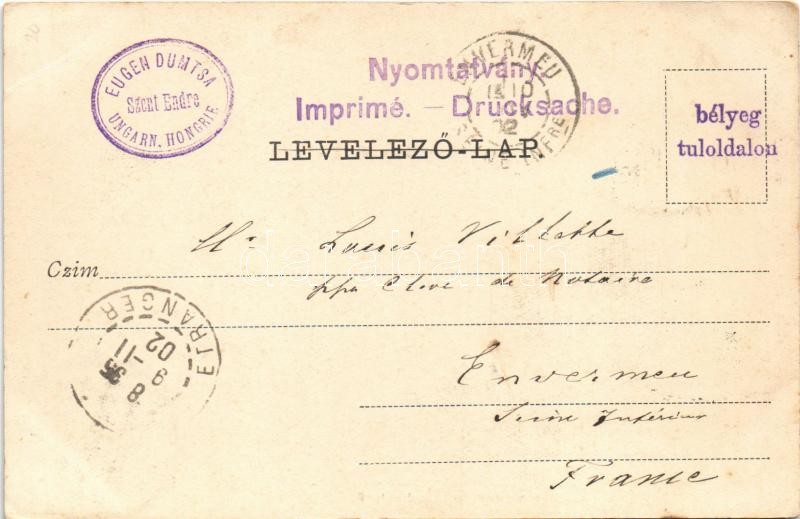 EUGEN DUMTSA
Szent Endre
UNGARN, HONGRIE
Nyomtatvány
Imprimé. — Drucksache.
ENVERMEU
LEVELEZŐ-LAP
bélyeg
tuloldalon
Mr Louis Villette
Czim
ppa Clerc de Notaire
ETRANGER
8 35
9 -11
02
Envermeu
Seine Inférieure
France